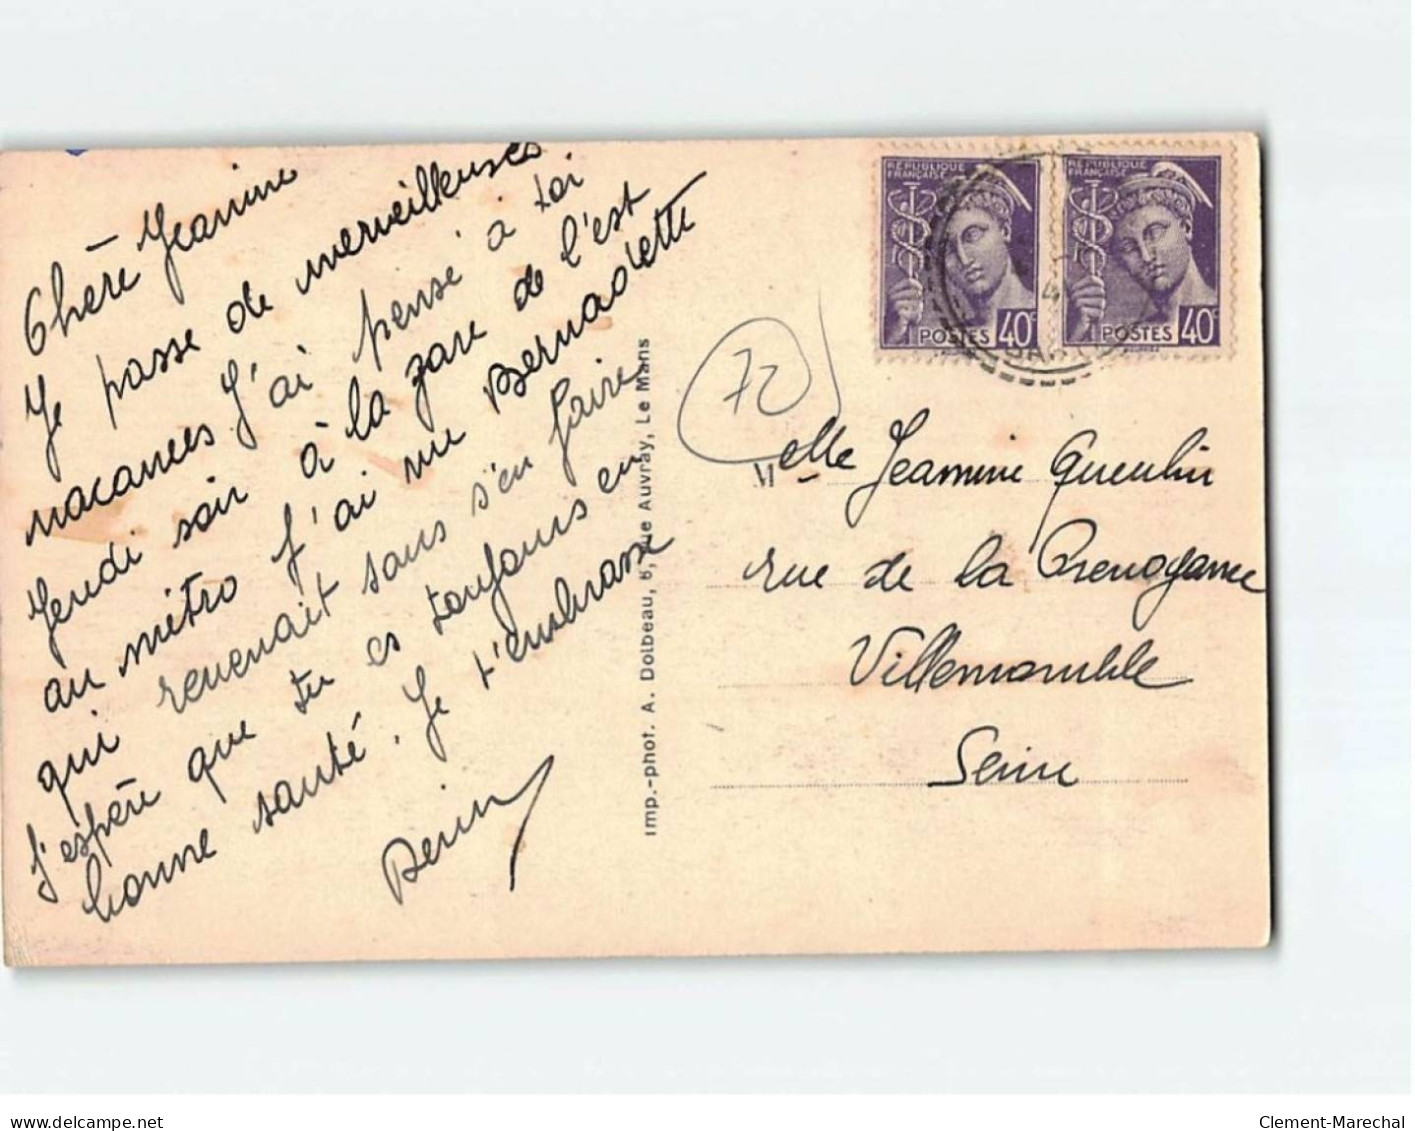 Chère Jeanine
Je passe de merveilleuses
vacances J'ai pensé à toi
Jeudi soir à la gare de l'est
au métro J'ai vu Bernadette
qui revenait sans s'en faire
J'espère que tu es toujours en
bonne santé. Je t'embrasse
Imp.-phot. A. Dolbeau, 6, rue Auvray, Le Mans
72
RÉPUBLIQUE
FRANÇAISE
POSTES 40c
RÉPUBLIQUE
FRANÇAISE
POSTES 40c
Melle Jeannine Quentin
rue de la
Villemomble
Seine
delcampe.net
Clement-Marechal